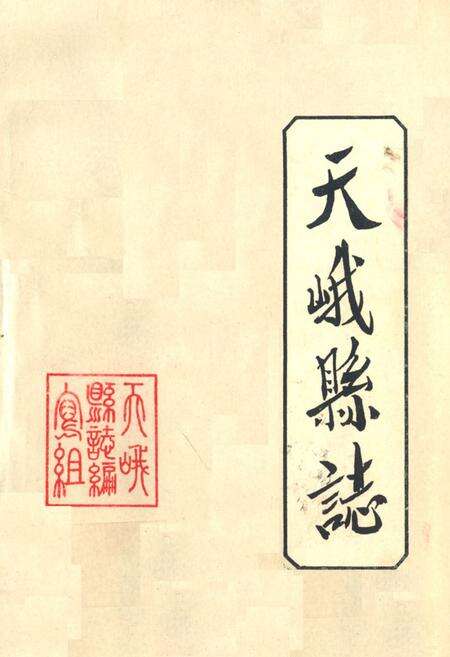 天峨縣誌
天峨
縣誌編
寫組